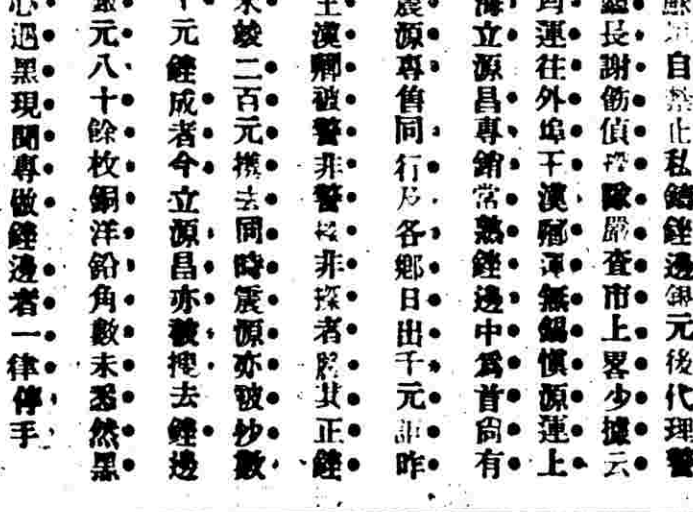 自禁止私鏟銼邊銀元後代理警
長謝飭偵探隊嚴查市上畧少據云
蓮往外埠王漢卿運無錫愼源運上
海立源昌專銷常熟銼邊中爲首尙有
震源專售同行及各鄕日出千元詎昨
王漢卿被警非警探非探者將其正銼
未竣二百元携去同時震源亦被抄數
十元銼成者今立源昌亦被搜去銼邊
銀元八十餘枚銅洋鉛角數未悉然黑
心迅黑現聞專做銼邊者一律停手